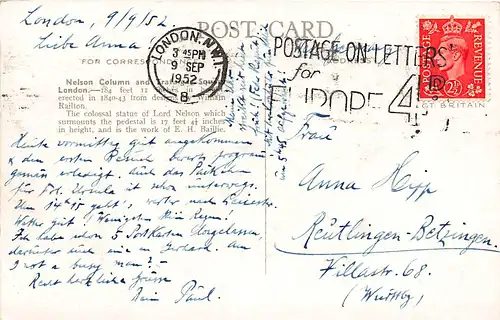 London, 9/9/52
Liebe Anna
POST CARD
FOR CORRESPON
Nelson Column and Squ
London.—184 feet
erected in 1840-43 from desig William
Railton.
The colossal statue of Lord Nelson which
surmounts the pedestal is 17 feet 4½ inches
in height, and is the work of E. H. Baillie.
Heute vormittag gut angekommen
den ersten Besuch bereits program
gemäss erledigt. Auch das Päckchen
für Frl. Ursula ist schon unterwegs.
Um geht's weiter nach Leicester.
Wetter gut! Wenigstens kein Regen!
Ich habe schon 5 Postkarten losgelassen,
darunter auch eine an Gerhard. Am
I not a busy man? –
Recht herzliche Grüsse
Dein Paul.
LONDON. N.W.1.
3 45 PM
9 SEP
1952
B
POSTAGE ON LETTERS
for
EUROPE 4D
POSTAGE
REVENUE
2½D
GT BRITAIN
Frau
Anna Hipp
Reutlingen-Betzingen
Villastr. 68.
(Wttbg)